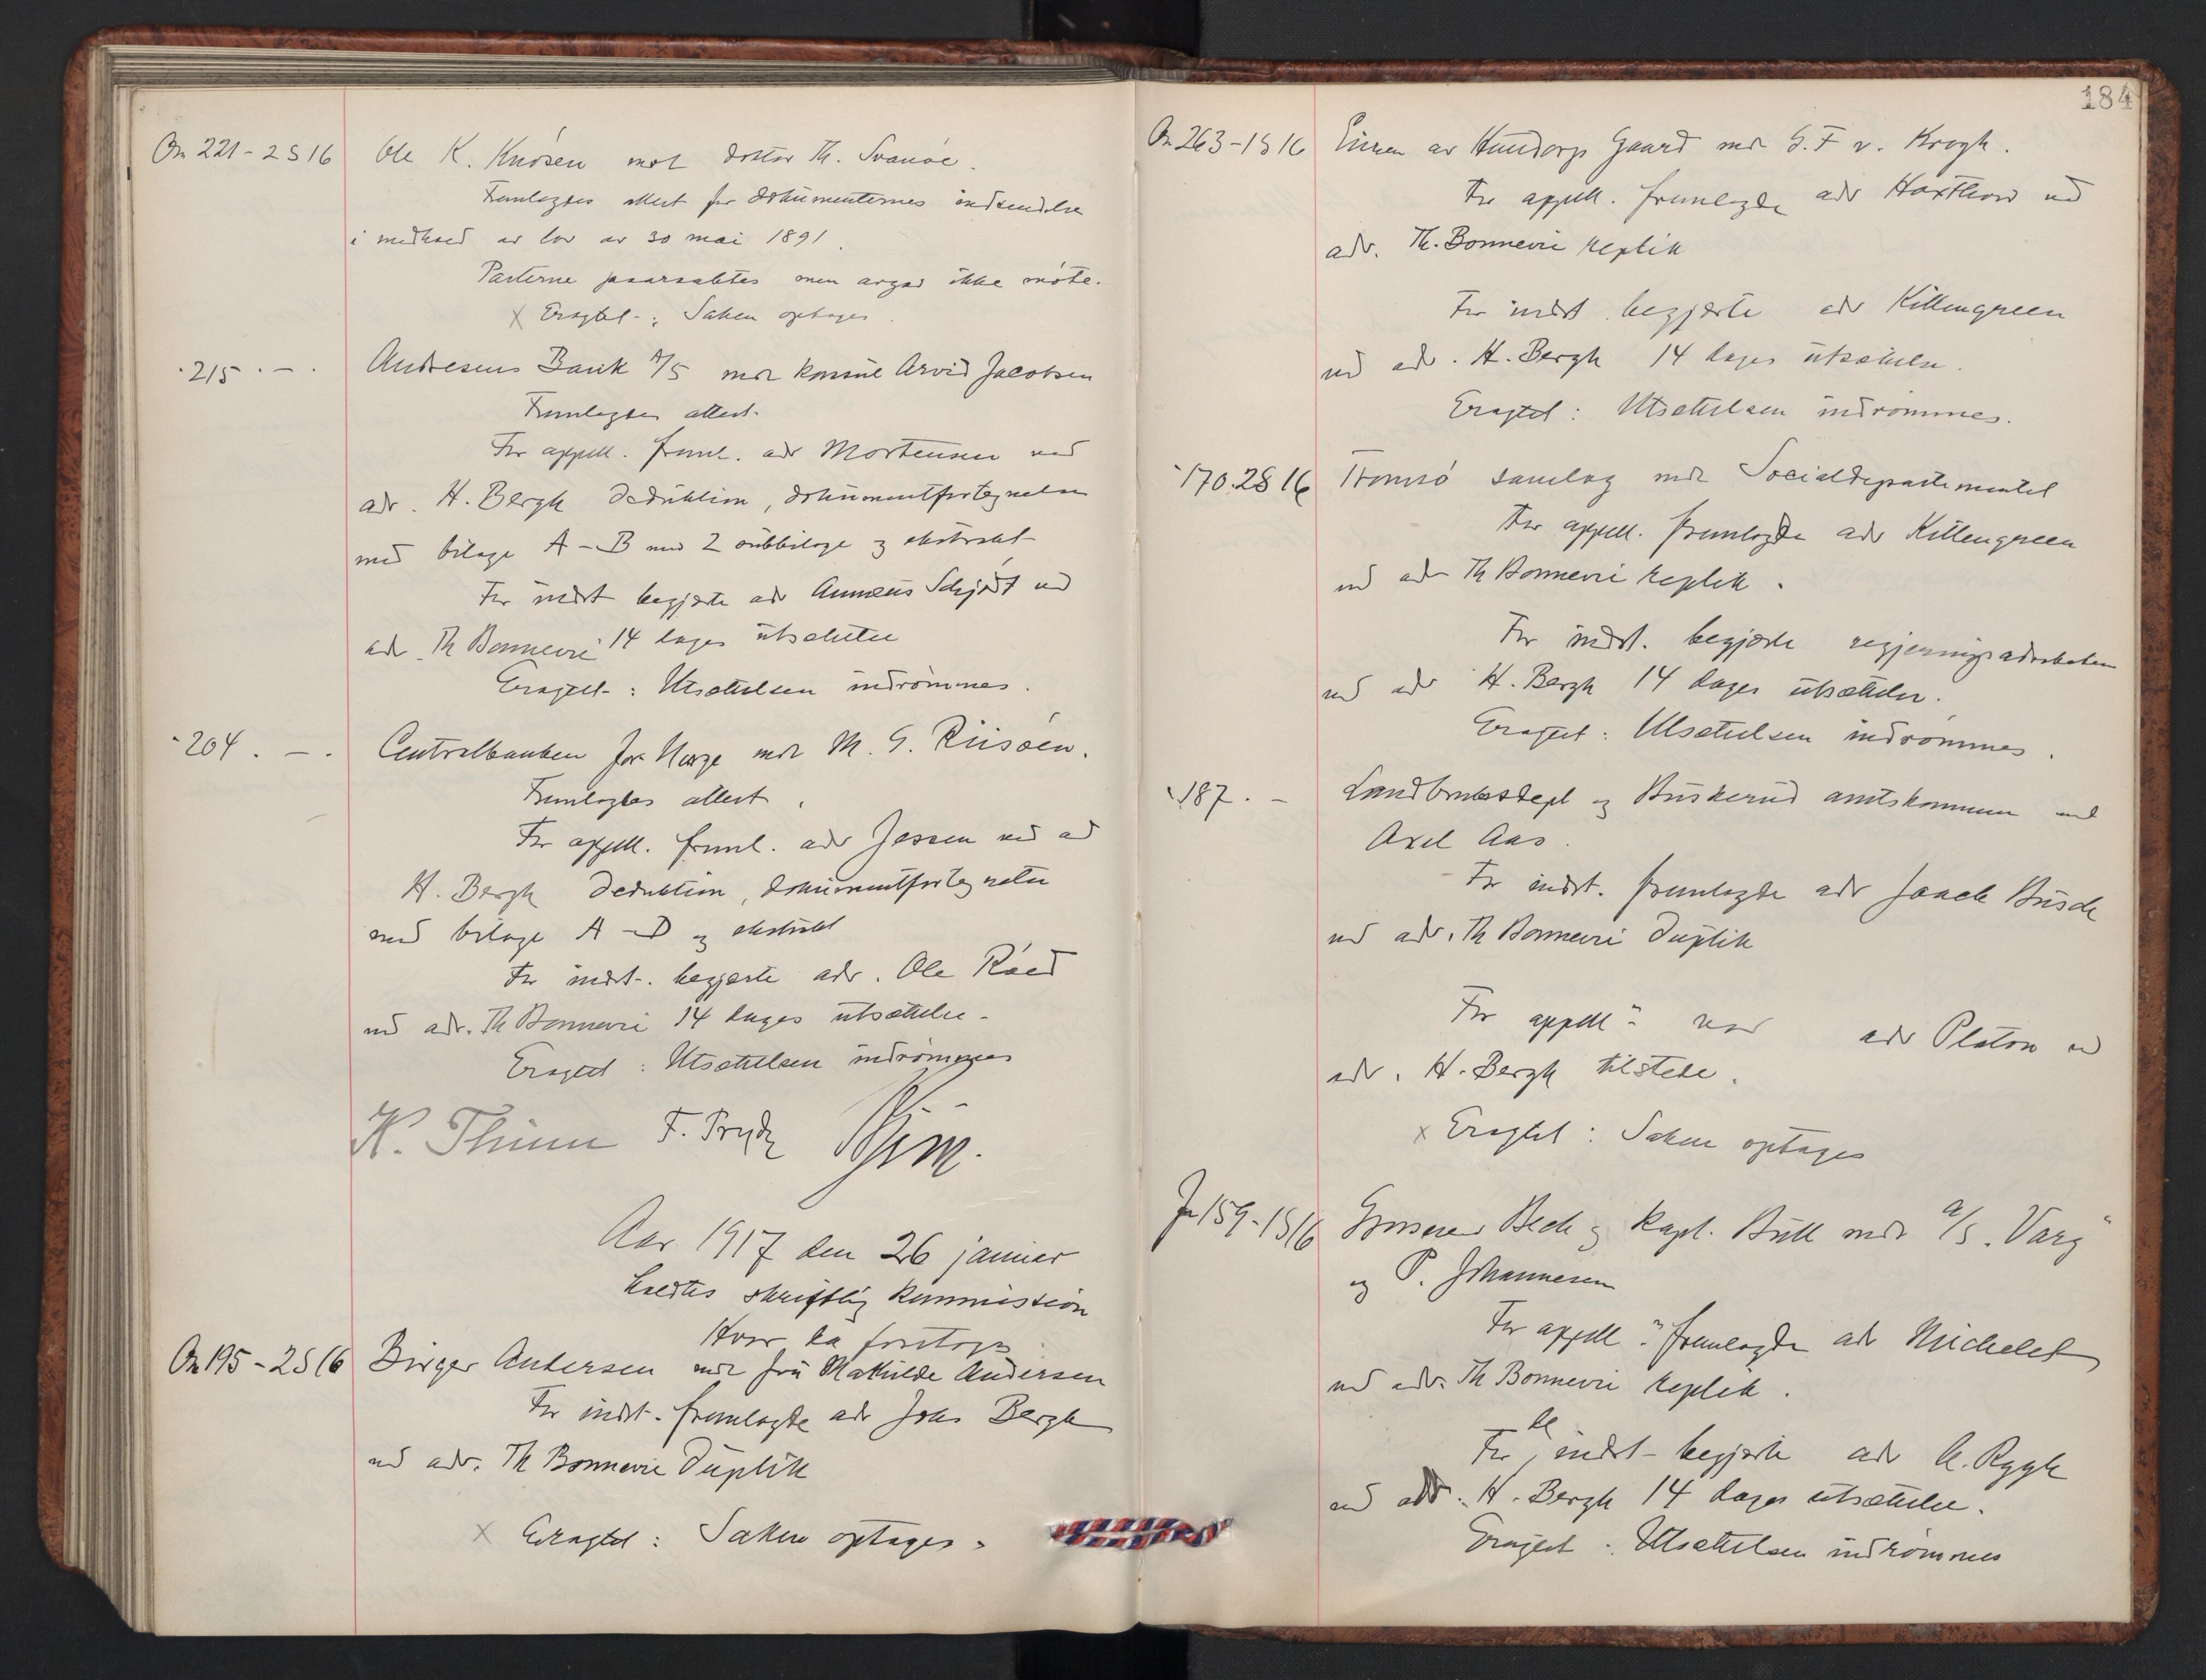 On 221 - 2 S 16 Ole K. Knösen mot doktor Th. Svanöe.
Fremlagdes attest for dokumenternes indsendelse
i medhold av lov av 30 mai 1891.
Parterne paaraabtes men avgav ikke möte.
x Eragtet: Saken optages.
" 215 . - . Andresens Bank A/S mot konsul Arvid Jacobsen
Fremlagdes attest.
For appell. freml. adv Mortensen ved
adv. H. Bergh deduktion, dokumentfortegnelse
med bilage A - B med 2 subbilage og ekstrakt
For indst begjærte adv Annæus Schjødt ved
adv. Th Bonnevie 14 dages utsættelse
Eragtet: Utsættelsen indrömmes.
" 204 . - . Centralbanken for Norge mot M. G. Riisöen.
Fremlagdes attest.
For appell. freml. adv Jessen ved ad
H. Bergh deduktion, dokumentfortegnelse
med bilage A - D og ekstrakt
For indst. begjærte adv. Ole Röed
ved adv. Th Bonnevie 14 dages utsættelse.
Eragtet: Utsættelsen indrömmes
K. Thinn F. Prydz
Aar 1917 den 26 januar
holdtes skriftlig kommission
Hvor da foretoges
On 195 - 2 S 16 Birger Andersen mot fru Mathilde Andersen
For indst. fremlagde adv Johs Bergh
ved adv. Th Bonnevie Duplik
x Eragtet: Saken optages.
184
On 263 - 1 S 16 Eieren av Hundorp Gaard mot G. F v. Krogh.
For appell. fremlagde adv Haxthow ved
adv. Th. Bonnevie replik
For indst begjærte adv Killengreen
ved adv. H. Bergh 14 dages utsættelse.
Eragtet: Utsættelsen indrömmes.
" 170. 2 S 16 Tromsö samlag mot Socialdepartementet
For appell. fremlagde adv Killengreen
ved adv Th Bonnevie replik.
For indst. begjærte regjeringsadvokaten
ved adv H. Bergh 14 dages utsættelse.
Eragtet: Utsættelsen indrömmes.
" 187. - Landbruksdept og Buskerud amtskommune mot
Axel Aas.
For indst. fremlagde adv Jaach Busch
ved adv. Th Bonnevie Duplik
For appell." var adv Platou ved
adv. H. Bergh tilstede.
x Eragtet: Saken optages
Jn 159 - 1 S 16 Grosserer Beck og kapt. Bull mot A/S "Varg"
og P. Johannesen
For appell." fremlagde adv Michelet
ved adv. Th Bonnevie replik.
For de indst begjærte adv A. Rygh
ved adv. H. Bergh 14 dages utsættelse.
Eragtet: Utsættelsen indrömmes